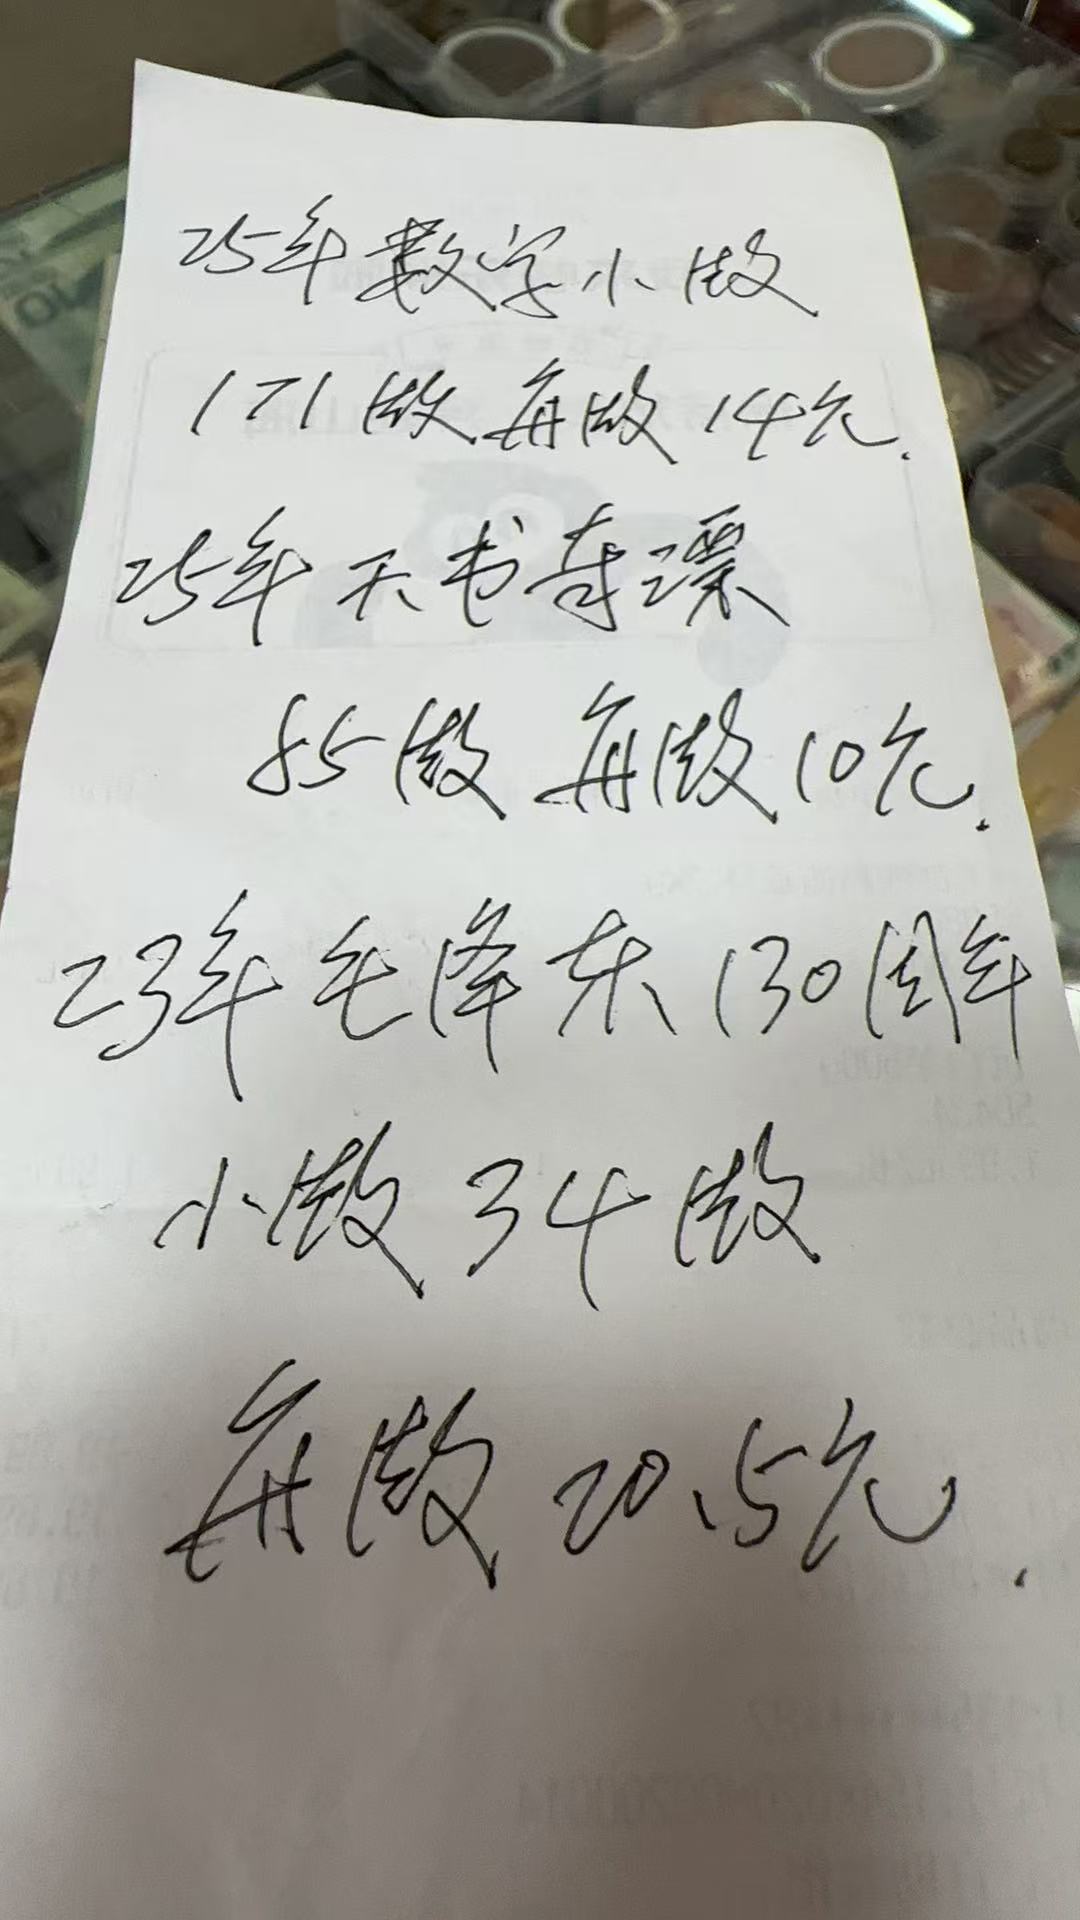 25年数字小版
171版每版14元.
25年天书奇谭
85版每版10元.
23年毛泽东130周年
小版34版
每版20.5元.